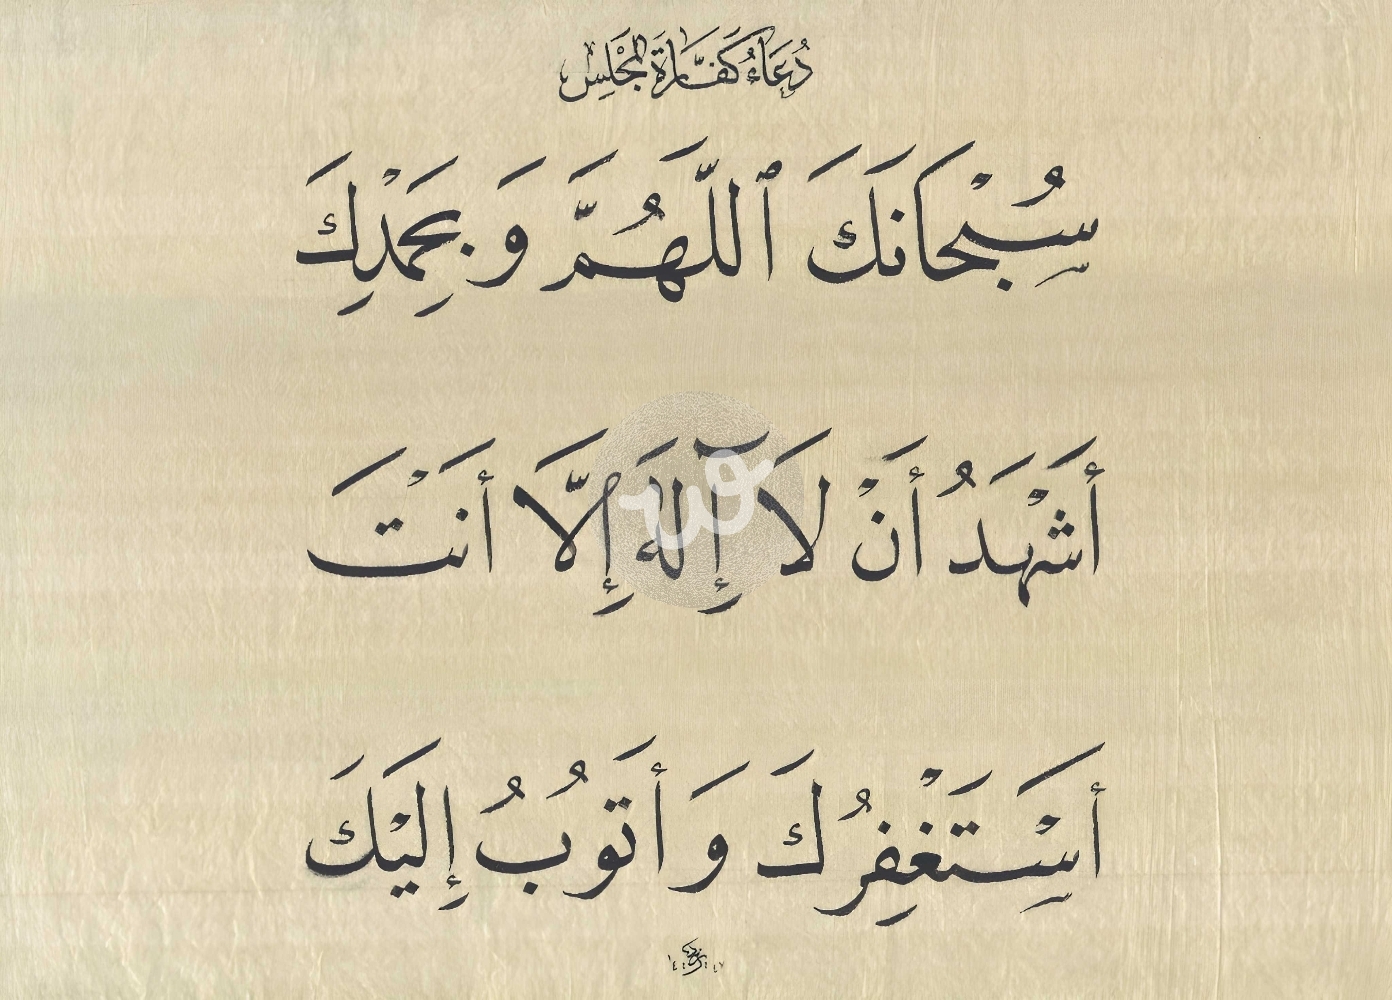 دُعَاءُ كَفَّارَةِ الْمَجْلِسِ
سُبْحَانَكَ ٱللَّهُمَّ وَبِحَمْدِكَ
أَشْهَدُ أَنْ لَآ إِلَهَ إِلَّا أَنْتَ
أَسْتَغْفِرُكَ وَأَتُوبُ إِلَيْكَ